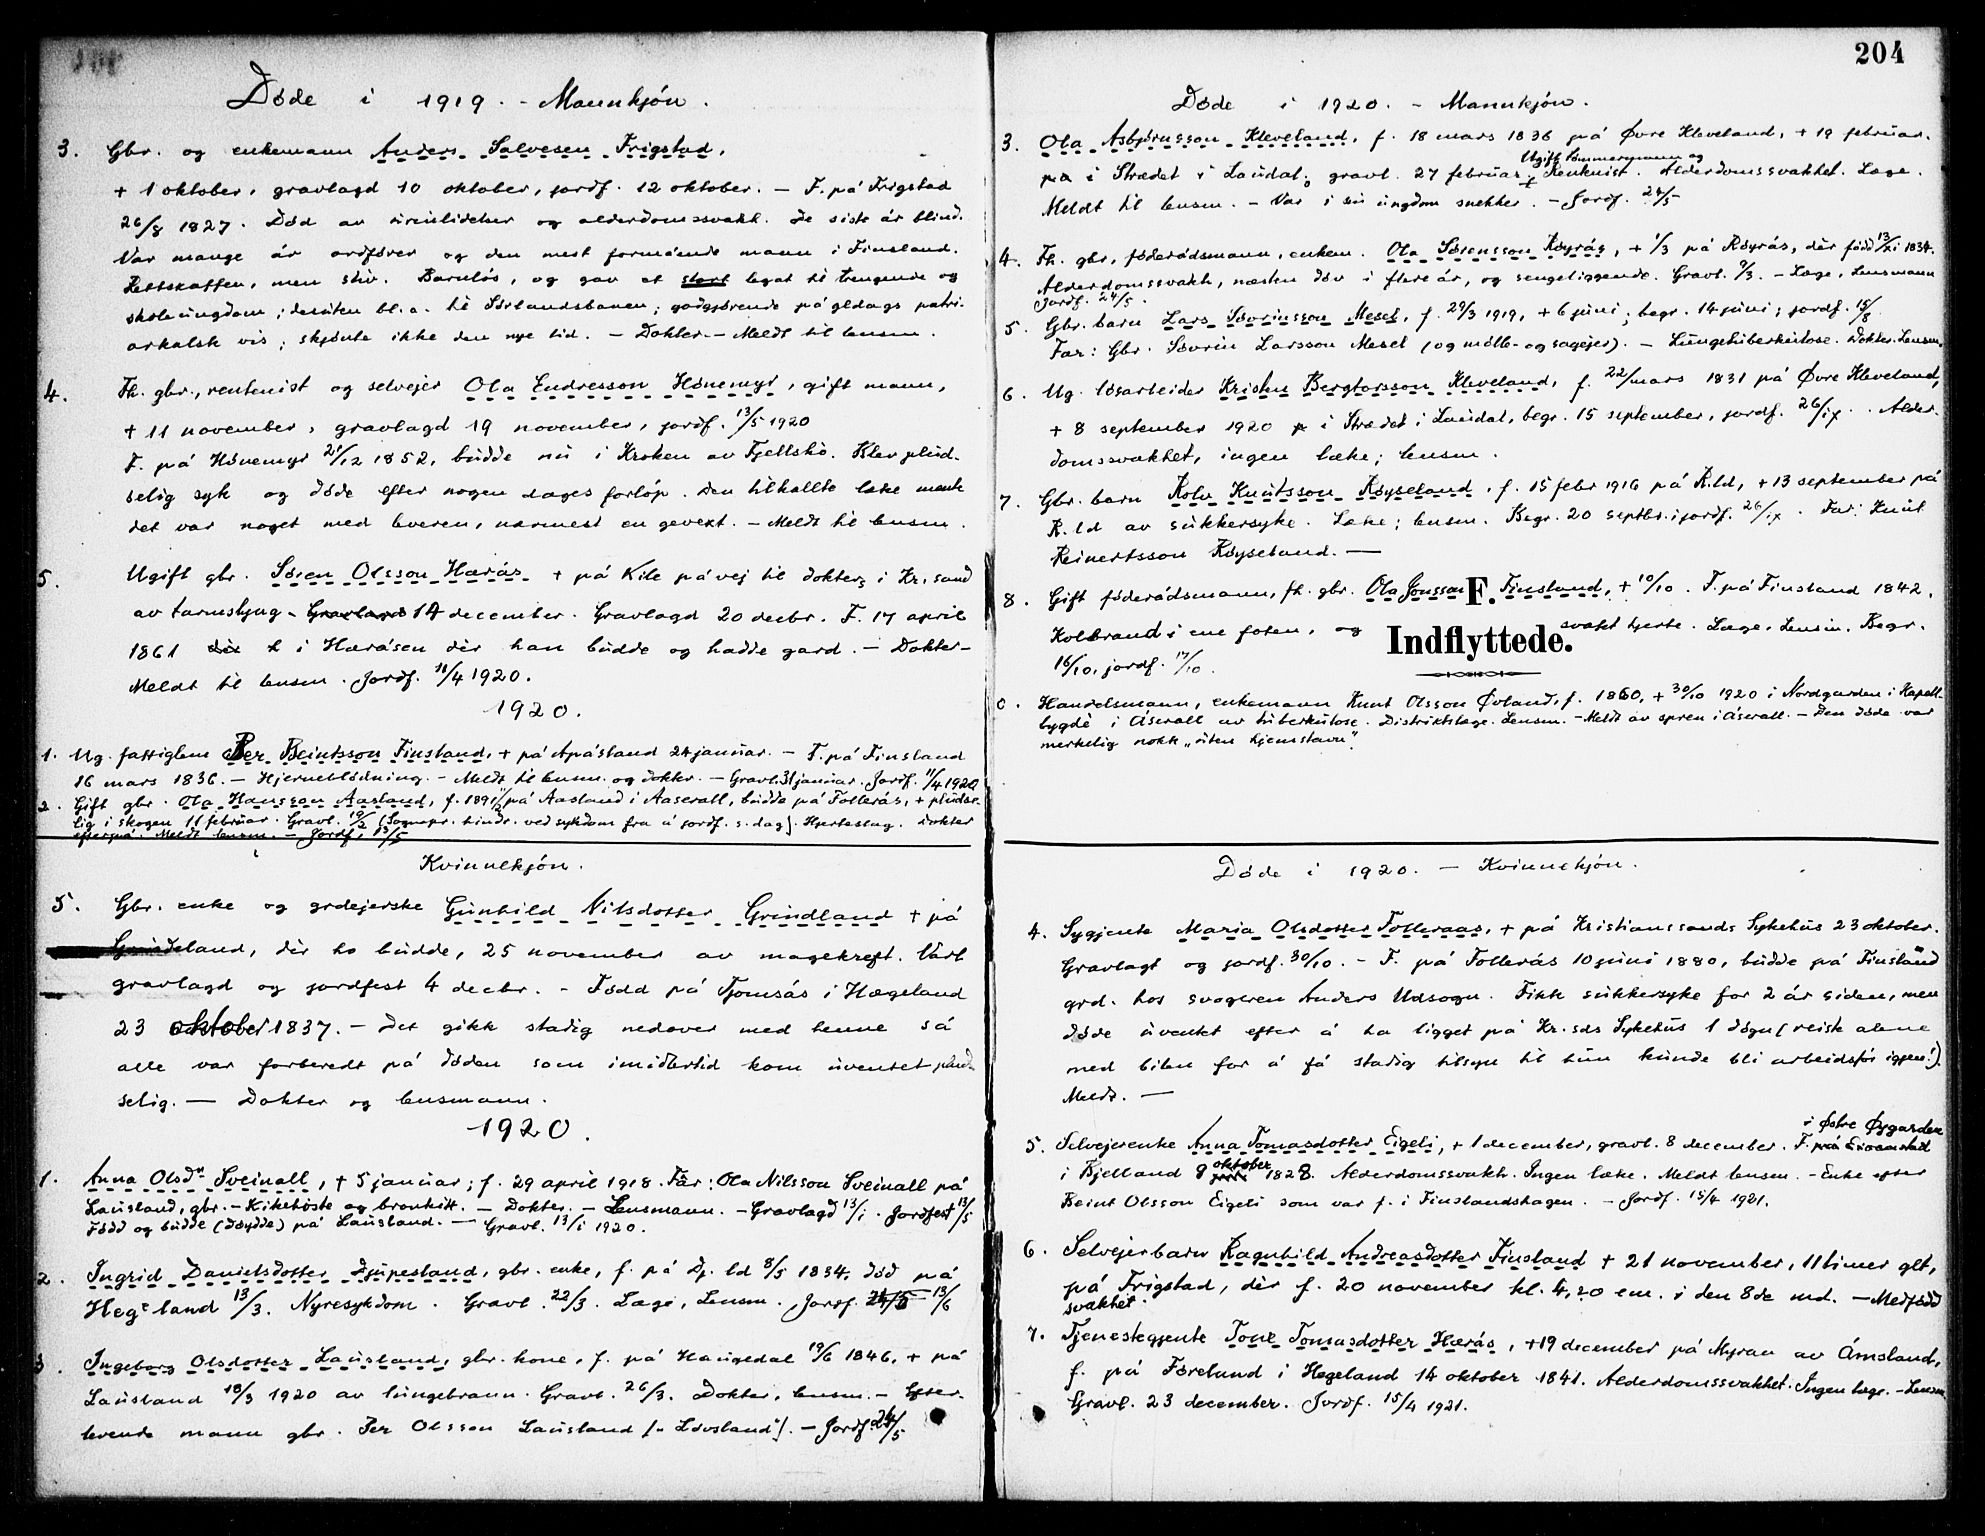 Døde i 1919. - Mannkjøn.
3. Gbr. og enkemann Anders Salvesen Frigstad,
+ 1 oktober, gravlagd 10 oktober, jordf. 12 oktober. - F. på Frigstad
26/8 1827. Død av urinlidelser og alderdomssvakh. De siste år blind.
Var mange år ordfører og den mest formående mann i Finsland.
Rettskaffen, men stiv. Barnløs, og gav et stort legat til trengende og
skoleungdom; desuten bl.a. til Sørlandsbanen; godgjørende på gldags patri-
arkalsk vis; skjønte ikke den nye tid. - Dokter. - Meldt til lensm.
4. Fh. gbr., rentenist og selvejer Ola Endresson Hønemyr, gift mann,
+ 11 november, gravlagd 19 november, jordf. 13/5 1920
F. på Hønemyr 21/12 1852, budde nu i Kroken av Fjellskå. Klev plud-
selig syk og døde efter nogen dages forløp. Den tilkallte læke mente
det var noget med leveren, nærmest en gevekt. - Meldt til lensm.
5. Ugift gbr. Søren Olsson Hærås + på Kile på vej til dokter i Kr.sand
av tarmslyng - Gravlagd 14 december. Gravlagd 20 decbr. F. 17 april
1861 i Hæråsen dèr han budde og hadde gard. - Dokter-
Meldt til lensm. Jordf. 11/4 1920.
1920.
1. Ug. fattiglem Per Beintsson Finsland, + på Apåsland 24 januar. - F. på Finsland
16 mars 1836. - Hjerneblødning. - Meldt til lensm. og dokter. - Gravl. 31 januar. Jordf. 11/4 1920
2. Gift gbr. Ola Hansson Aasland, f. 1891 på Aasland i Aaserall, budde på Follerås, + pludse-
lig i skogen 11 februar. Gravl. 19/2 (Sognepr. hindr. ved sykdom fra å jordf. s. dag). Hjerteslag. Dokter
efterpå. Meldt lensm. - Jordf. 13/5
Kvinnekjøn.
5. Gbr. enke og grdejerske Gunhild Nilsdotter Grindland + på
Grindeland, dèr ho budde, 25 november av magekreft. Vart
gravlagd og jordfest 4 decbr. - Fødd på Tjomsås i Hægeland
23 oktober 1837. - Det gikk stadig nedover med henne så
alle var forberedt på døden som imidlertid kom uventet plud-
selig. - Dokter og lensmann.
1920.
1. Anna Olsd. Sveinall, + 5 januar; f. 29 april 1918. Får: Ola Nilsson Sveinall på
Lausland, gbr. - Kikehoste og bronkitt. - Dokter. - Lensmann. - Gravlagd 13/1. Jordfest 13/5
Fødd og budde (døydde) på Lausland. - Gravl. 13/1 1920.
2. Ingrid Danielsdotter Djupesland, gbr. enke, f. på Dj.ld 8/5 1834. død på
Hegeland 13/3. Nyresykdom. Gravl. 22/3. Læge, Lensm. Jordf. 24/5 13/6
3. Ingeborg Olsdotter Lausland, gbr. kone, f. på Haugedal 19/6 1846, + på
Lausland 18/3 1920 av lungebrann. Gravl. 26/3. Dokter, lensm. - Efter-
levende mann gbr. Per Olsson Lausland ["Løvsland"]. - Jordf. 24/5
204
Døde i 1920. - Mannkjøn.
3. Ola Asbjørnsson Kleveland, f. 18 mars 1836 på Øvre Kleveland, + 19 februar.
Ugift tømmermann og
på i Strædet i Laudal, gravl. 27 februar. + Rentenist. Alderdomssvakhet. Læge.
Meldt til lensm. - Var i sin ungdom snekker. - Jordf. 24/5
4. Fh. gbr, føderådsmann, enkem. Ola Sørensson Røyrås, + 1/3 på Røyrås, dèr fødd 13/xi 1834.
Alderdomssvakh, næsten døv i flere år, og sengeliggende. Gravl. 9/3. - Læge, Lensmann
Jordf. 24/5.
5. Gbr. barn Lars Søvrinsson Mesel, f. 29/3 1919, + 6 juni; begr. 14 juni; jordf. 15/8.
Far: Gbr. Søvrin Larsson Mesel (og mølle- og sagejer). - Lungetuberkulose. Dokter. Lensm.
6. Ug. løsarbeider Kristen Bergtorsson Kleveland, f. 22/mars 1831 på Øvre Kleveland,
+ 8 september 1920 i Strædet i Laudal, begr. 15 september, jordf. 26/ix. Alder-
domssvakhet, ingen læke; lensm.
7. Gbr. barn Rolv Knutsson Røyseland, f. 15 febr 1916 på R.ld, + 13 september på
R.ld av sukkersyke. Læke; lensm. Begr. 20 septbr. jordf. 26/ix. Far: Knut
Reinertsson Røyseland. -
8. Gift føderådsmann, fh. gbr. Ola Jonsson F. Finsland, + 10/10. F. på Finsland 1842.
Kolbrand i ene foten, og svakt hjerte. Læge, Lensm. Begr.
Indflyttede.
16/10, jordf. 17/10.
c. Handelsmann, enkemann Knut Olsson Øvland, f. 1860, + 30/10 1920 i Nordgarden i Kapell-
bygdè i Åserall av tuberkulose. Distriktslæge. Lensm. - Meldt av spren i Åserall. - Den døde var
merkelig nokk „uten hjemstavn".
Døde i 1920. - Kvinnekjøn.
4. Sygjente Maria Olsdotter Folleraas, + på Kristianssands Sykehus 23 oktober.
Gravlagt og jordf. 30/10. - F. på Follerås 10 juni 1880, budde på Finsland
grd. hos svogeren Anders Udsogn. Fikk sukkersyke for 2 år siden, men
døde uventet efter å ha ligget på Kr.sds Sykehus 1 døgn (reiste alene
med bilen for å få stadig tilsyn til hun kunde bli arbeidsfør igjen!).
Meldt. -
i Østre Øygarden
5. Selvejerenke Anna Tomasdotter Eigeli, + 1 december, gravl. 8 december. F. på
i Bjelland 9 oktober 1828. Alderdomssvakh. Ingen læke. Meldt lensm. - Enke efter
Beint Olsson Eigeli som var f. i Finslandshagen. - Jordf. 15/4 1921.
6. Selvejerbarn Ragnhild Andreasdotter Finsland + 21 november, 11 timer glt,
på Frigstad, dèr f. 20 november kl. 4,20 em. i den 8de md. - Medfødd
svakhet.
7. Tjenestegjente Tone Tomasdotter Hærås, + 19 december på Myran av Åmsland,
f. på Føreland i Hegeland 14 oktober 1841. Alderdomssvakhet. Ingen læge. - Lensm
Gravl. 23 december. Jordf. 15/4 1921.